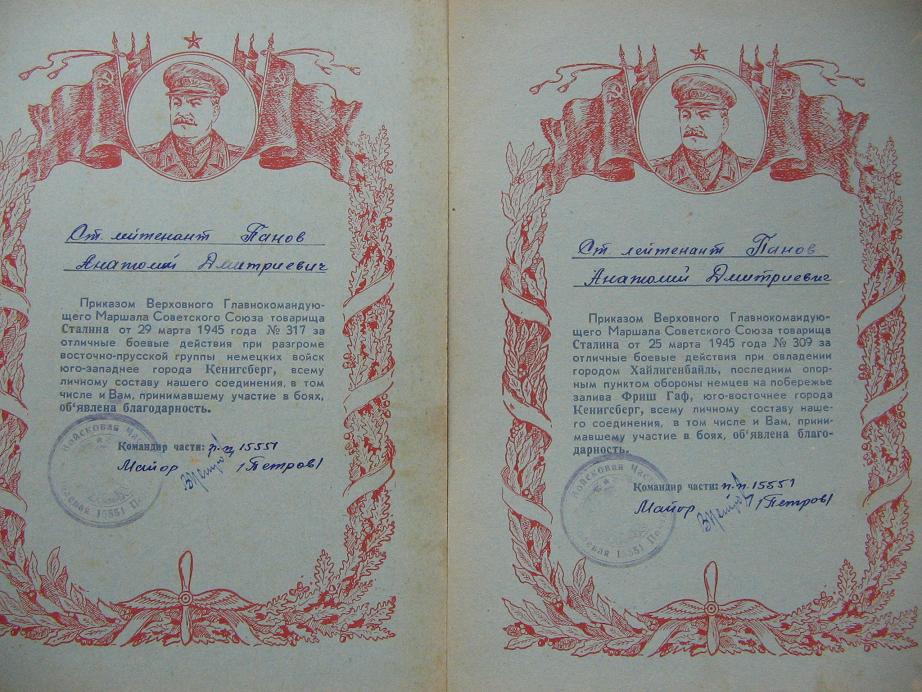 Ст. лейтенант Панов
Анатолий Дмитриевич
Приказом Верховного Главнокомандую-
щего Маршала Советского Союза товарища
Сталина от 29 марта 1945 года № 317 за
отличные боевые действия при разгроме
восточно-прусской группы немецких войск
юго-западнее города Кенигсберг, всему
личному составу нашего соединения, в том
числе и Вам, принимавшему участие в боях,
об'явлена благодарность.
Командир части: п.п. 15551
Майор /Петров/
Войсковая Часть
Полевая 15551 Почта
Ст. лейтенант Панов
Анатолий Дмитриевич
Приказом Верховного Главнокомандую-
щего Маршала Советского Союза товарища
Сталина от 25 марта 1945 года № 309 за
отличные боевые действия при овладении
городом Хайлигенбайль, последним опор-
ным пунктом обороны немцев на побережье
залива Фриш Гаф, юго-восточнее города
Кенигсберг, всему личному составу наше-
го соединения, в том числе и Вам, прини-
мавшему участие в боях, об'явлена благо-
дарность.
Командир части: п.п. 15551
Майор /Петров/
Войсковая
15551